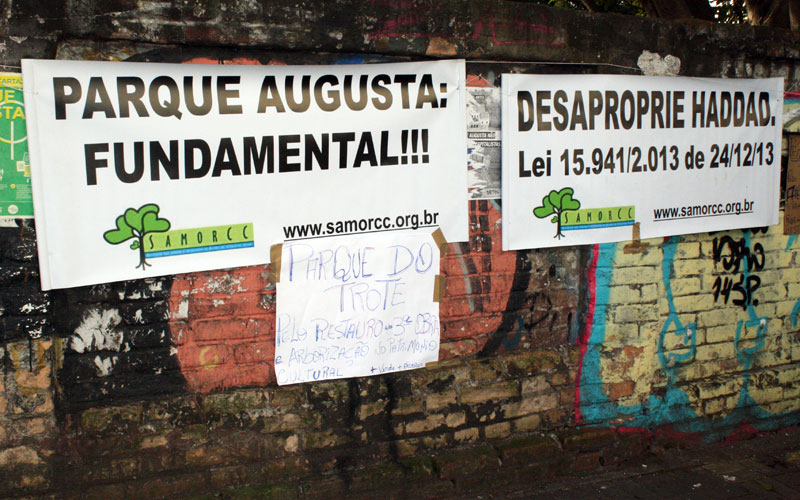 PARQUE AUGUSTA:
FUNDAMENTAL!!!
SAMORCC
www.samorcc.org.br
DESAPROPRIE HADDAD.
Lei 15.941/2.013 de 24/12/13
SAMORCC
www.samorcc.org.br
PARQUE DO
TROTE
PELO RESTAURO 3ª OBRA
e ARBORIZAÇÃO DO PATRIMONIO
CULTURAL
+ Verde +
AUGUSTA NÃO